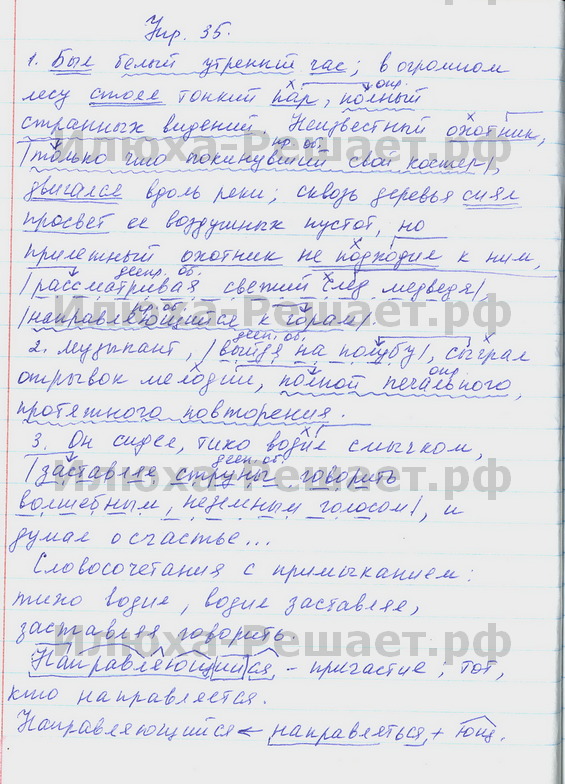 Упр. 35.
1. Был белый утренний час; в огромном
опр.
лесу стоял тонкий пар, полный
странных видений. Неизвестный охотник,
пр. об.
|только что покинувший свой костер|,
двигался вдоль реки; сквозь деревья сиял
просвет ее воздушных пустот, но
прилежный охотник не подходил к ним,
дееп. об.
|рассматривая свежий след медведя|,
пр. об.
|направляющийся к горам|.
дееп. об.
2. Музыкант, |выйдя на палубу|, сыграл
опр.
отрывок мелодии, полной печального,
протяжного повторения.
3. Он сидел, тихо водил смычком,
дееп. об.
|заставляя струны говорить
волшебным, неземным голосом|, и
думал о счастье...
Словосочетания с примыканием:
тихо водил, водил заставляя,
заставляя говорить.
Направляющийся – причастие; тот,
кто направляется.
Направляющийся ← направляться + ющ.
Илюха-Решает.рф
Илюха-Решает.рф
Илюха-Решает.рф
Илюха-Решает.рф
Илюха-Решает.рф